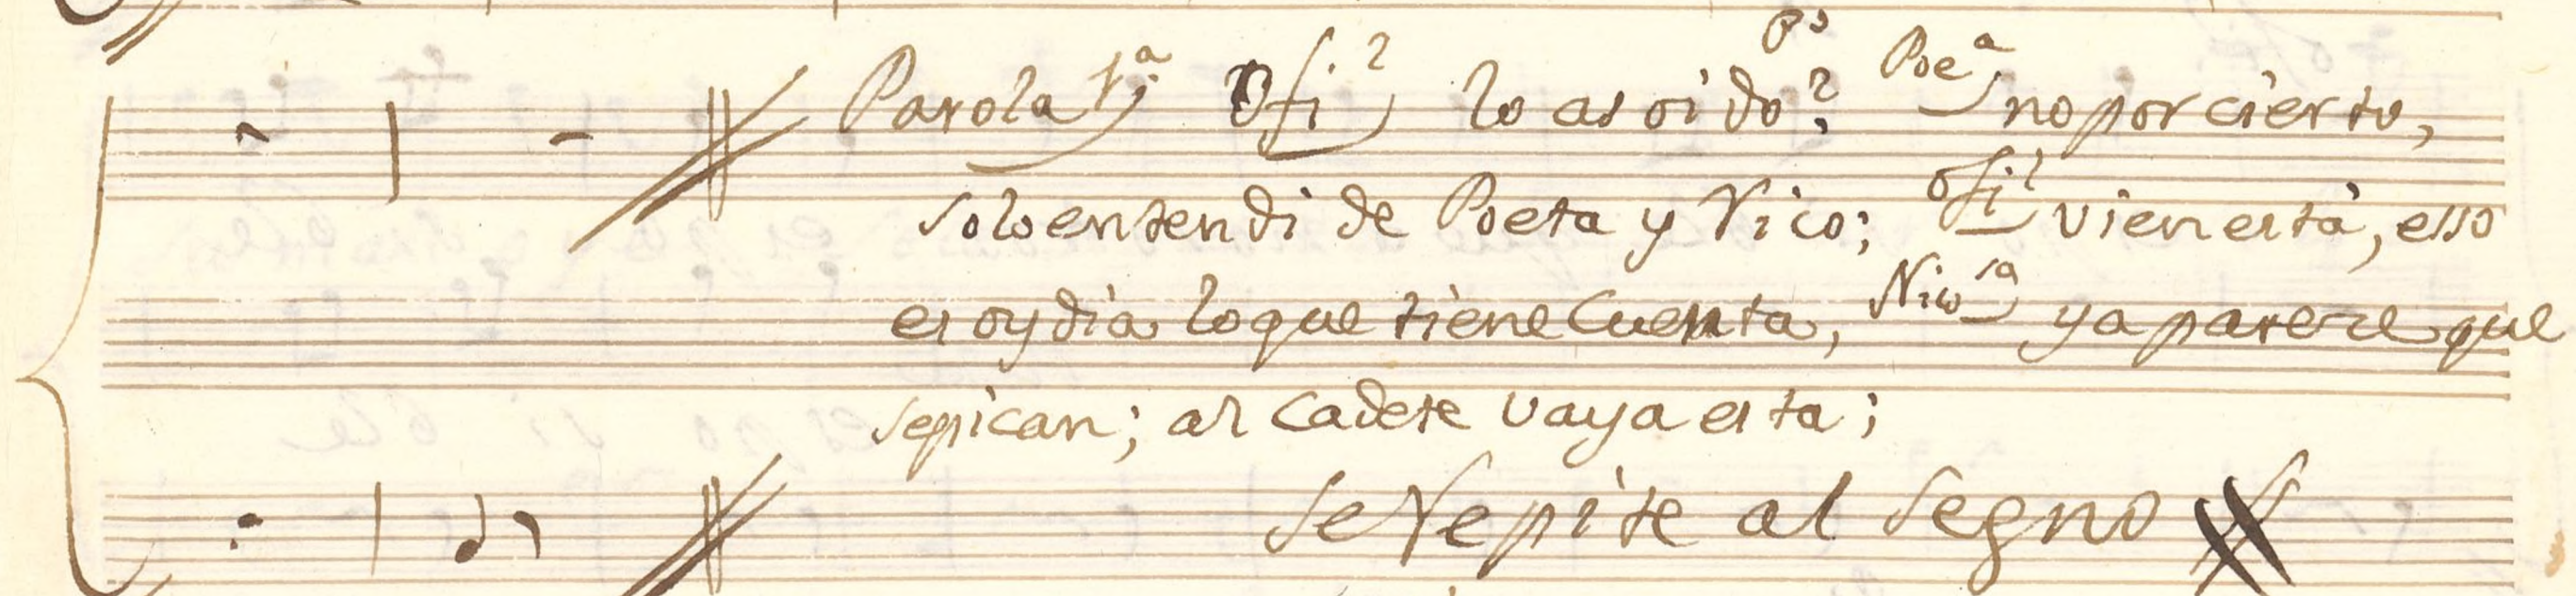 Parola 1ª. Ofi.l lo as oido? Poeª no por cierto,
solo entendi de Poeta y Rico; Ofi.l vien està, esso
es oy dia lo que tiene Cuenta, Nicoˢª ya parece que
se pican; al Cadete vaya esta;
se Repite al Segno